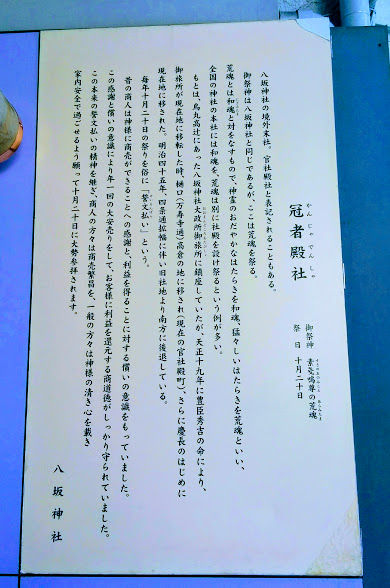 冠者殿社
かんじゃでんしゃ
御祭神 素戔嗚尊の荒魂
祭日 十月二十日
八坂神社の境外末社。官社殿社と表記されることもある。
御祭神は八坂神社と同じであるが、ここは荒魂を祭る。
荒魂とは和魂と対をなすもので、神霊のおだやかなはたらきを和魂、猛々しいはたらきを荒魂といい、
全国の神社の本社には和魂を、荒魂は別に社殿を設け祭るという例が多い。
もとは、烏丸高辻にあった八坂神社大政所御旅所に鎮座していたが、天正十九年に豊臣秀吉の命により、
御旅所が現在地に移転した時、樋口(万寿寺通)高倉の地に移され(現在の官社殿町)、さらに慶長のはじめに
現在地に移された。明治四十五年、四条通拡幅に伴い旧社地より南方に後退している。
毎年十月二十日の祭りを俗に「誓文払い」という。
昔の商人は神様に商売ができることへの感謝と、利益を得ることに対する償いの意識をもっていました。
この感謝と償いの意識により年一回の大安売りをして、お客様に利益を還元する商道徳がしっかり守られていました。
この本来の誓文払いの精神を継ぎ、商人の方々は商売繁昌を、一般の方々は神様の清き心を戴き
家内安全で過ごせるよう願って十月二十日に大勢参拝されます。
八坂神社